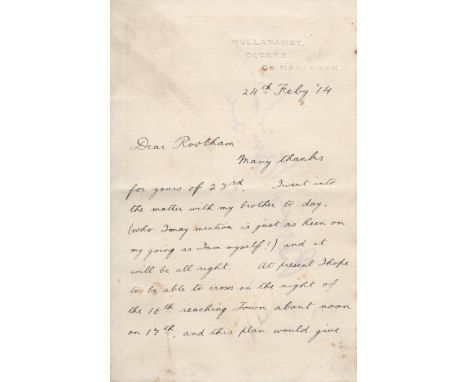 MULLANAMOY,
CLONES.
CO. MONAGHAN.
24th Feby '14
Dear Rootham
Many thanks
for yours of 23rd. I went into
the matter with my brother to day,
(who I may mention is just as keen on
my going as I am myself!) and it
will be all right. At present I hope
to be able to cross on the night of
the 16th reaching Town about noon
on 17th, and this plan would give